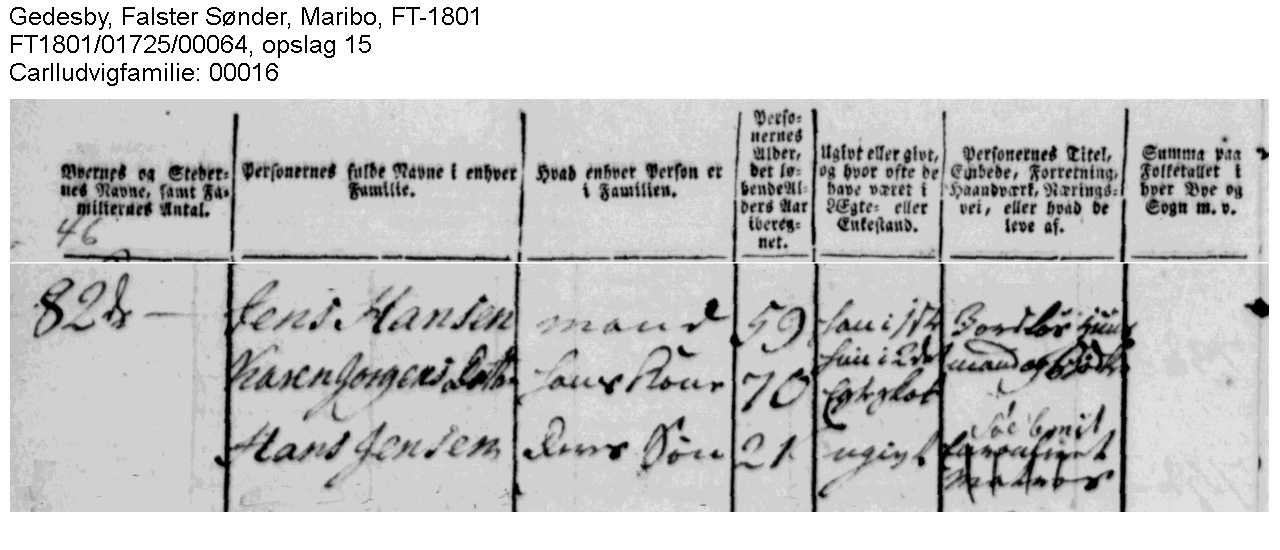 Gedesby, Falster Sønder, Maribo, FT-1801
FT1801/01725/00064, opslag 15
Carlludvigfamilie: 00016
Byernes og Steder-
nes Navne, samt Fa-
miliernes Antal.
46
Personernes fulde Navne i enhver
Familie.
Hvad enhver Person er
i Familien.
Perso-
nernes
Alder,
det lø-
bende Al-
ders Aar
ibereg-
net.
Ugivt eller givt,
og hvor ofte de
have været i
Ægte- eller
Enkestand.
Personernes Titel,
Embede, Forretning,
Haandværk, Nærings-
vei, eller hvad de
leve af.
Summa paa
Folketallet i
hver Bye og
Sogn m. v.
82de — Jens Hansen mand 59 han i 1ste Jordløs Huus
Karen Jorgens Datter hans Kone 70 hun i 2det mand og
Hans Jensen Deres Søn 21 ugivt